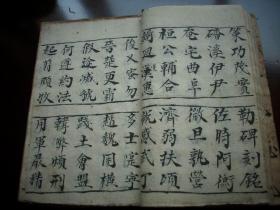 策功茂實勒碑刻銘
磻溪伊尹佐時阿衡
奄宅曲阜微旦孰營
桓公輔合濟弱扶傾
綺回漢惠説感武丁
俊乂密勿多士寔寧
晉楚更霸趙魏困橫
假途滅虢踐土會盟
何遵約法韓弊煩刑
起翦頗牧用軍最精